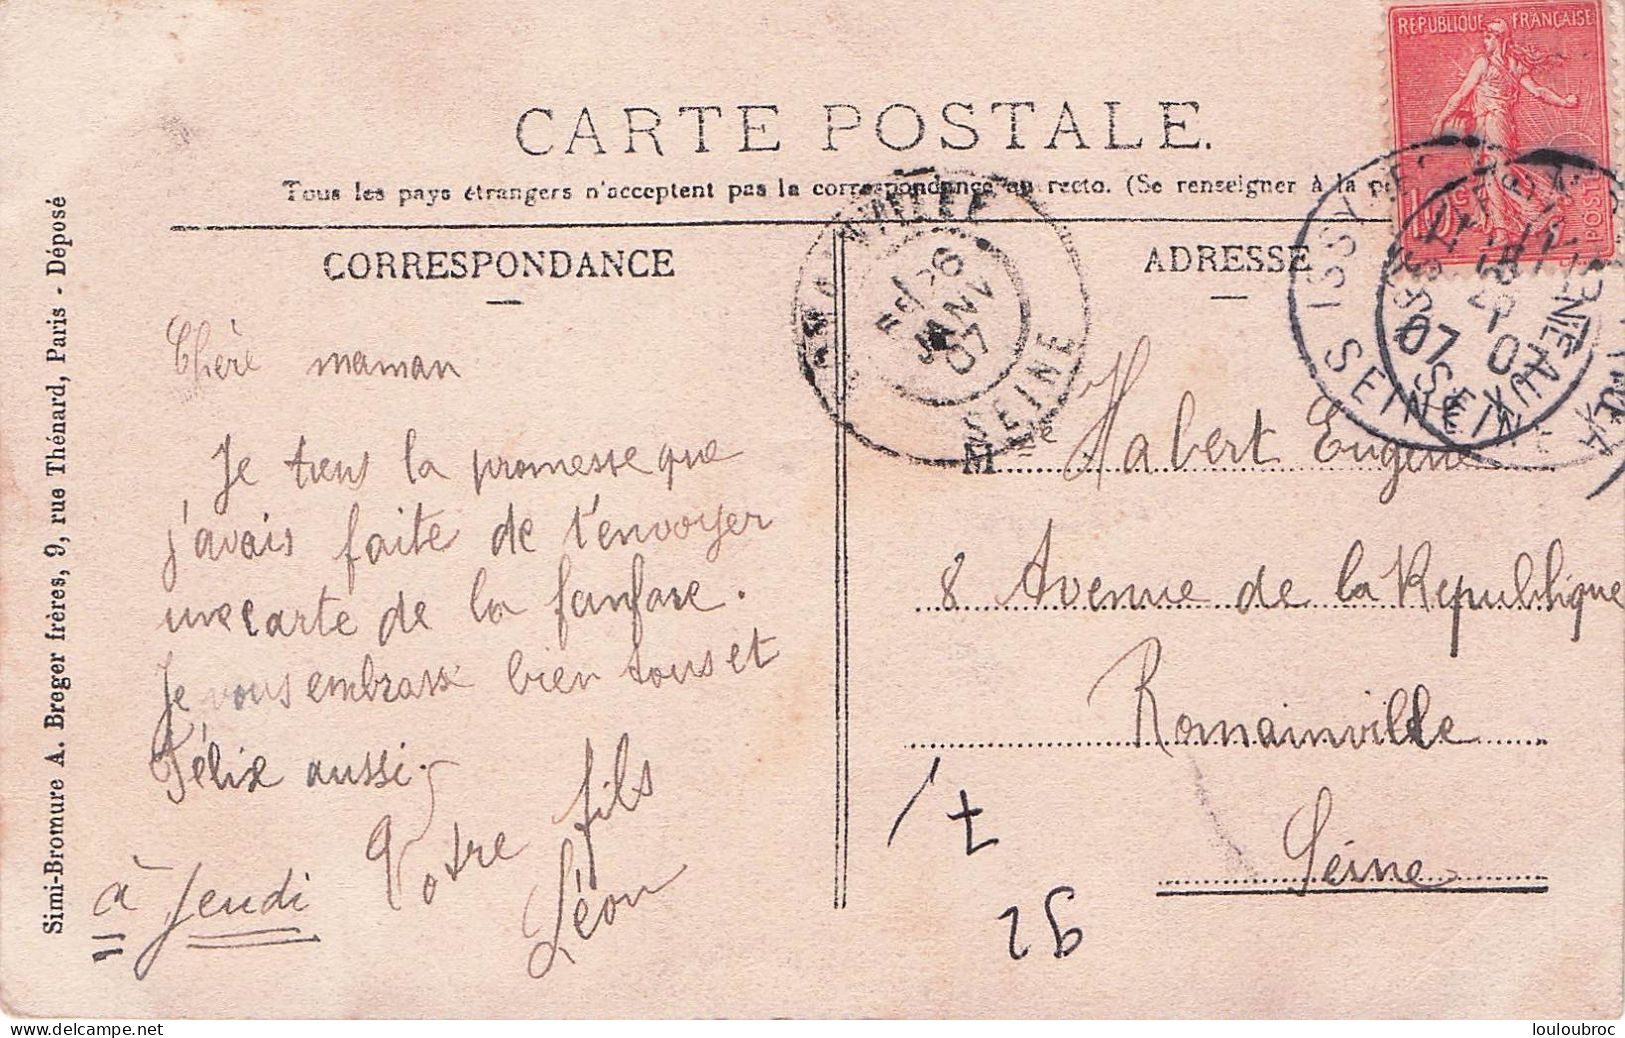 REPUBLIQUE FRANÇAISE
CARTE POSTALE.
Tous les pays étrangers n'acceptent pas la correspondance au recto. (Se renseigner à la
CORRESPONDANCE
ADRESSE
Chère maman
Je tiens la promesse que
j'avais faite de t'envoyer
une carte de la fanfare.
Je vous embrasse bien tous et
Félix aussi.
Votre fils
Léon
à Jeudi
Mme Habert Eugène
8 Avenue de la Republique
Romainville
Seine
7
92
26
JANV
07
SEINE
ISSY
SEINE
07
Simi-Bromure A. Breger frères, 9, rue Thénard, Paris - Déposé
delcampe.net
louloubroc